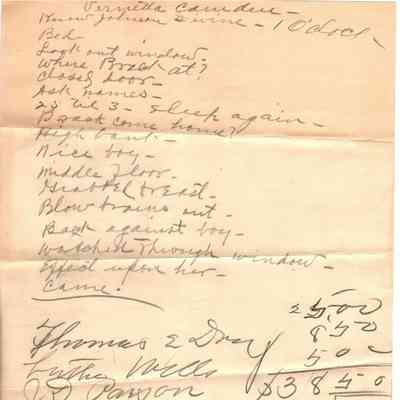 Vernetta Camden -
Know Johnson Divine - 1 O'clock -
Bed -
Look out window -
Where Brack at?
Closed door -
Ask names -
2 'til 3 - Sleep again -
Brack come home?
High bank -
Nice boy -
Middle floor -
Grabbed breast -
Blow brains out -
Back against boy -
Watched through window -
Effect upon her -
Came!
Thomas E
Luther Wells
Payson
25.00
8.50
5.00
$38.50